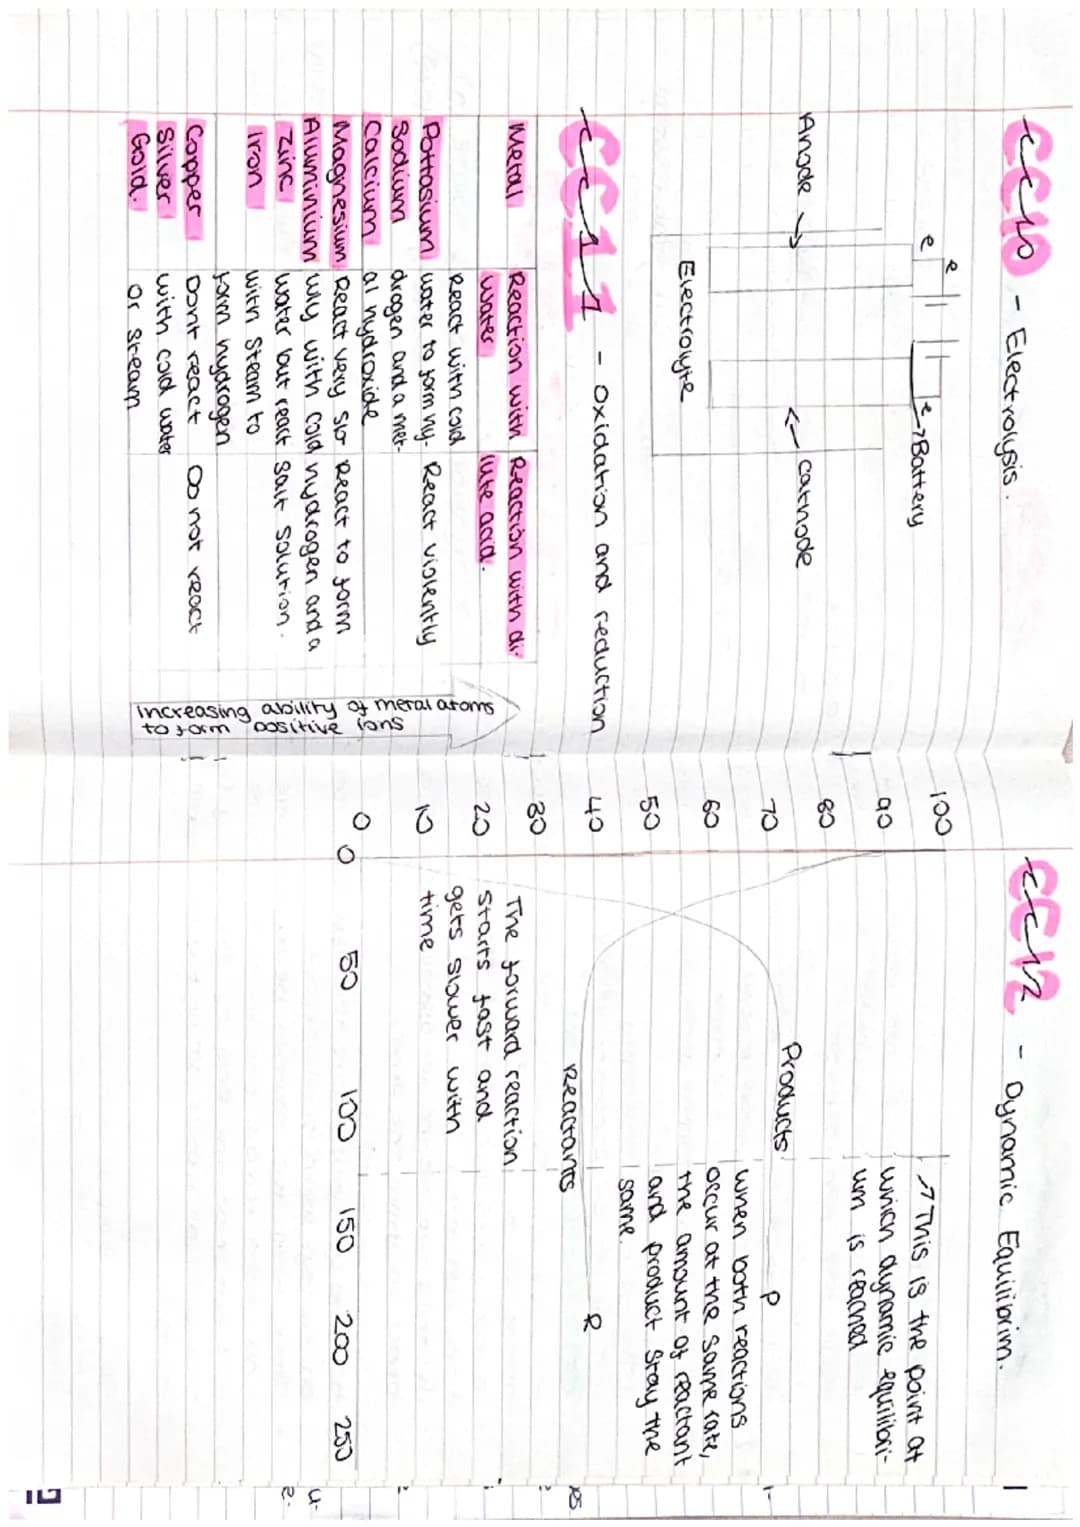 CC10 - Electrolysis.
e e
e → Battery
Anode →
← Cathode
Electrolyte
CC11 - Oxidation and reduction
Metal
Reaction with water
Reaction with di-
lute acid.
Pottasium
Sodium
Calcium
React with cold
water to form hy-
drogen and a met-
al hydroxide
React violently
Magnesium
Aluminium
Zinc
Iron
React very slo
wly with cold
water but react
with steam to
form hydrogen
React to form
hydrogen and a
salt solution.
Copper
Silver
Gold.
Dont react
with cold water
or steam
Do not react
increasing ability of metal atoms
to form positive ions
CC12 - Dynamic Equilibrim.
100
90
80
70
60
50
40
30
20
10
0
0 50 100 150 200 250
↗ This is the point at
which dynamic equilibri-
um is reached
Products
P
when both reactions
occur at the same rate,
the amount of reactant
and product stay the
same.
Reactants
R
The forward reaction
starts fast and
gets slower with
time